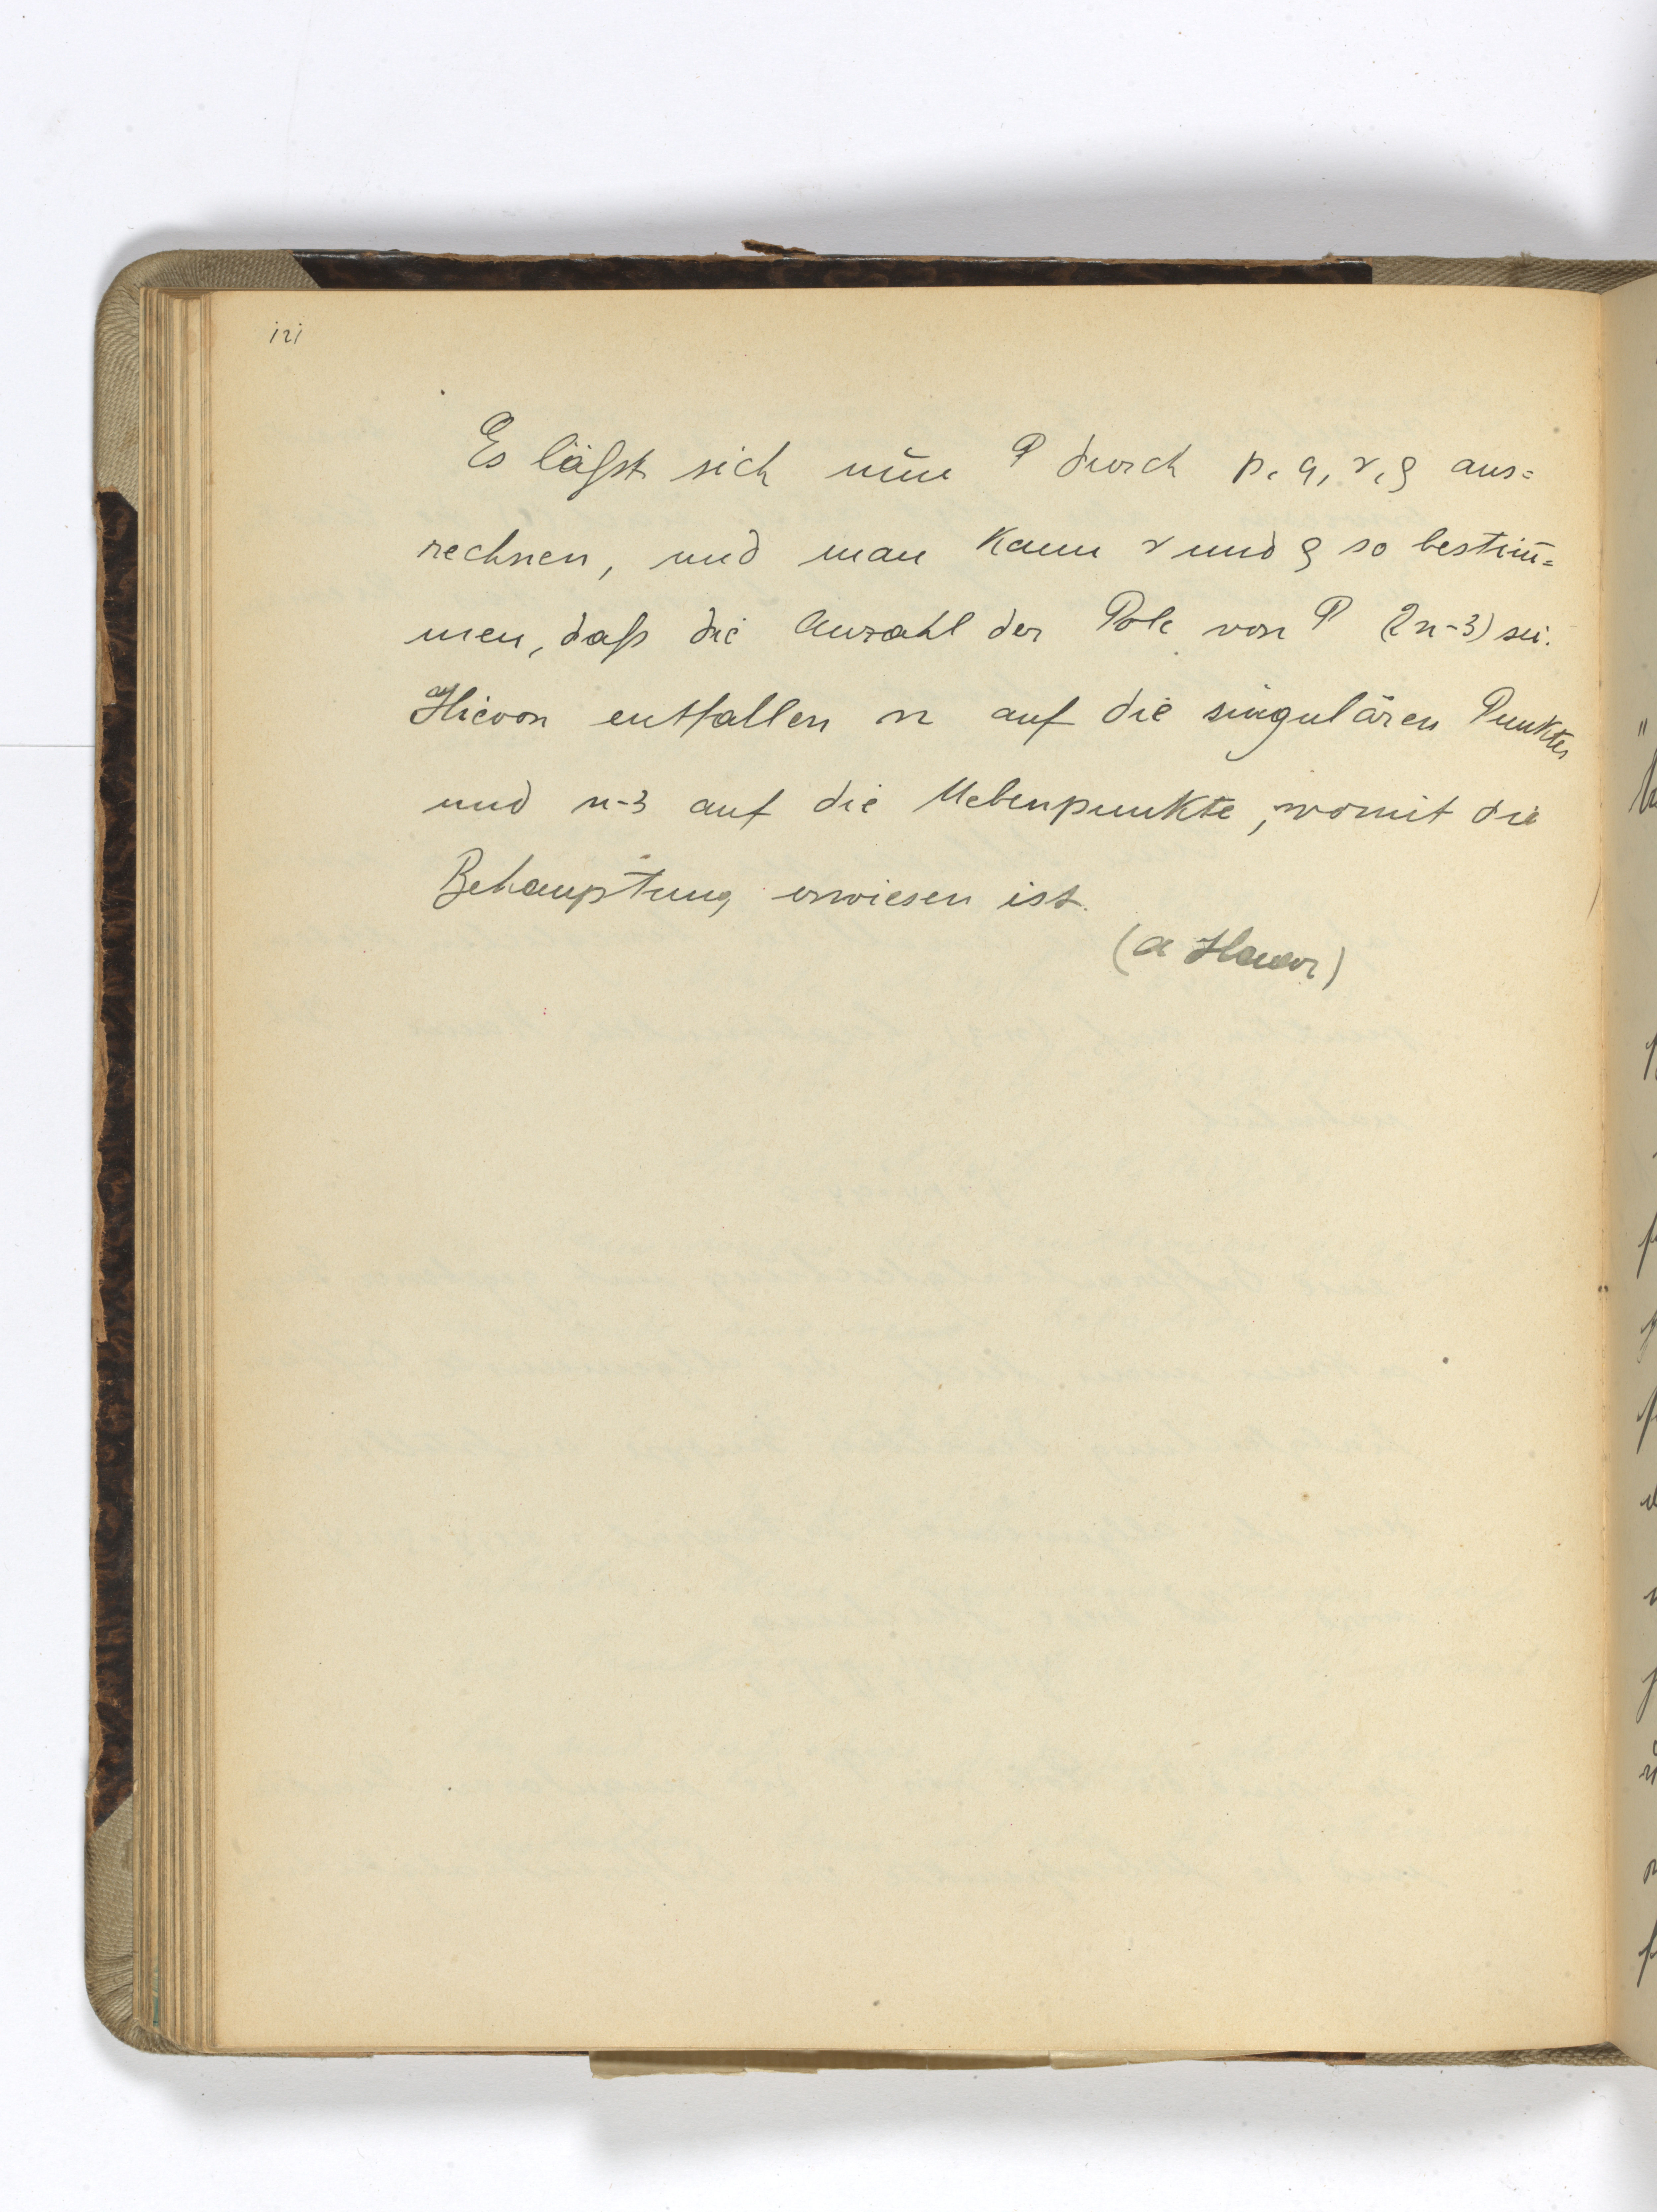 121
Es läßst sich nun P durch p, q, r, ρ aus=
rechnen, und man kann r und ρ so bestim̄=
men, daß die Anzahl der Pole von P (2n-3) sei.
Hievon entfallen n auf die singulären Punkte
und n-3 auf die Nebenpunkte, womit die
Behauptung erwiesen ist.
(A Hauer)